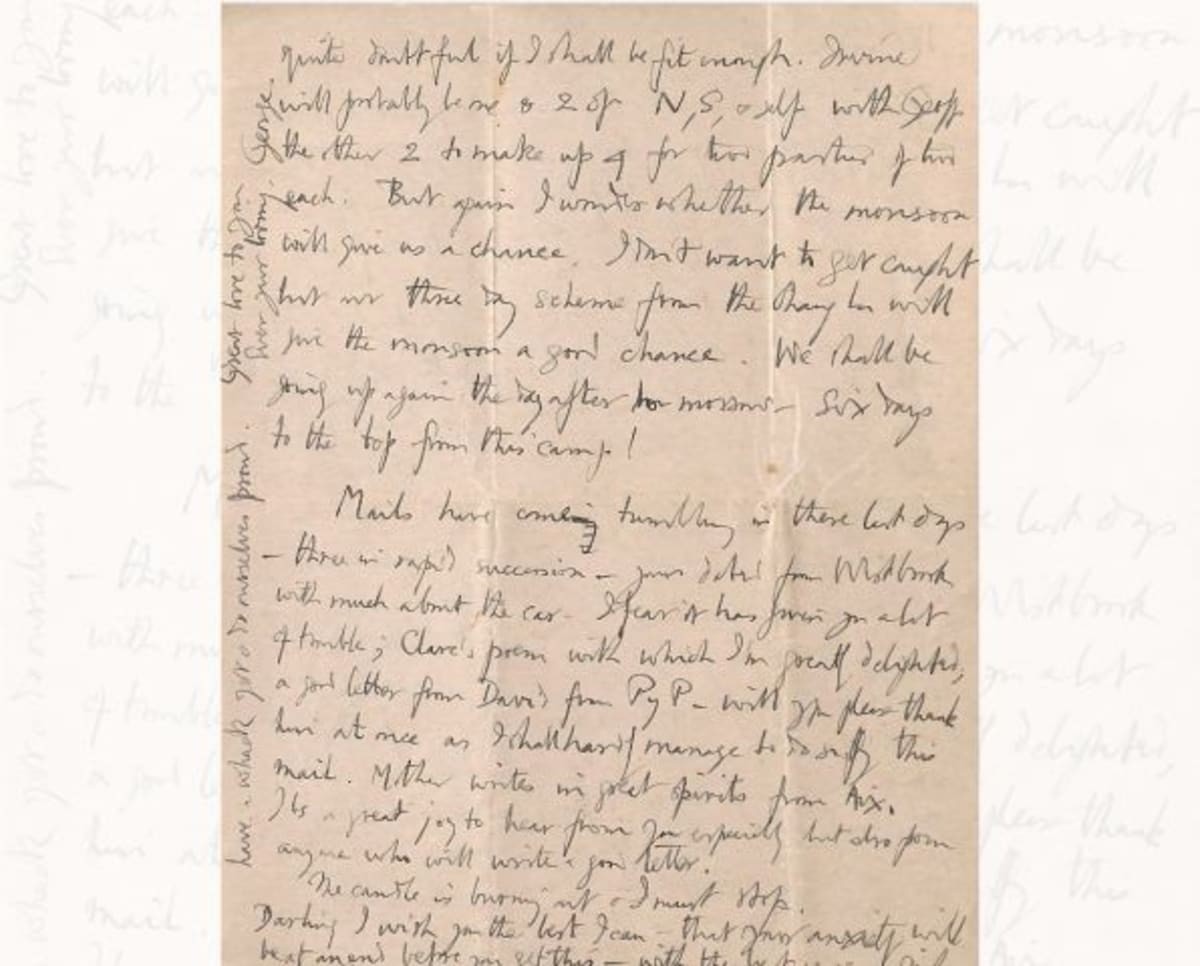 quite doubtful if I shall be fit enough. Irvine
will probably be one & 2 of N, S, & self with Geoff
the other 2 to make up 4 for two parties of two
each. But again I wonder whether the monsoon
will give us a chance. I don't want to get caught
but our three day scheme from the Chang La will
give the monsoon a good chance. We shall be
going up again the day after tomorrow - Six days
to the top from this camp!
Mails have coming tumbling in these last days
- three in rapid succession - yours dated from Westbrook
with much about the car. I fear it has given you a lot
of trouble; Clare's poem with which I'm greatly delighted;
a good letter from David from PyP - will you please thank
him at once as I shall hardly manage to do so by this
mail. Mother writes in great spirits from Aix.
It's a great joy to hear from you especially but also from
anyone who will write a good letter.
The candle is burning out & I must stop.
Darling I wish you the best I can - that your anxiety will
be at an end before you get this - with the best
have a whack got & do ourselves proud. Great love to you
Ever your loving George